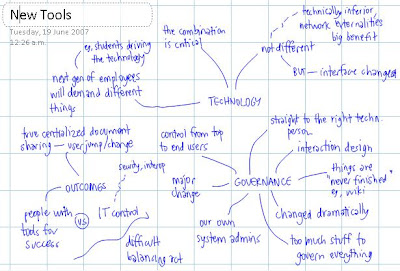 New Tools
Tuesday, 19 June 2007
12:26 a.m.
eg. students driving
the technology
next gen of employees
will demand different
things
the combination
is critical
technically inferior,
network externalities
big benefit
not different
BUT — interface changed
TECHNOLOGY
true centralized document
sharing — user jump/change
OUTCOMES
people with
tools for
success
VS
security, interop
IT control
difficult
balancing act
control from top
to end users
major
change
GOVERNANCE
our own
system admins
straight to the right techn.
person
interaction design
things are
"never finished"
eg. wiki
changed dramatically
too much stuff to
govern everything